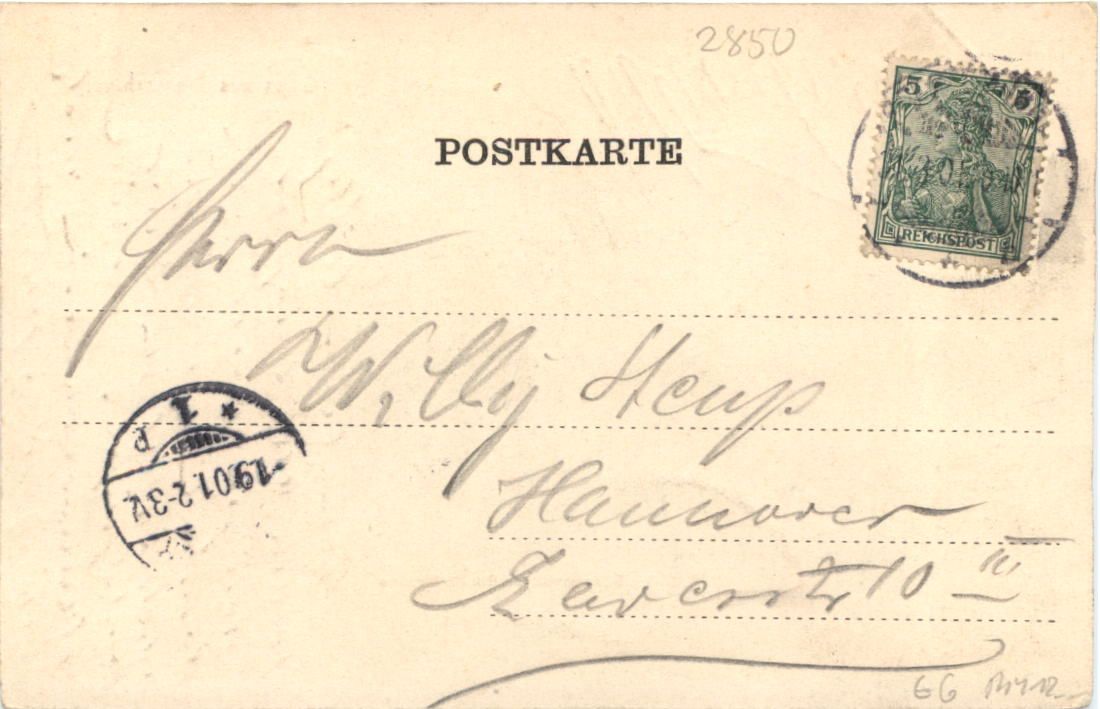 2850
5 5
POSTKARTE
REICHSPOST
Herrn
Willy Heup
1
1.9.01.2-3V.
Hannover
10 III
66